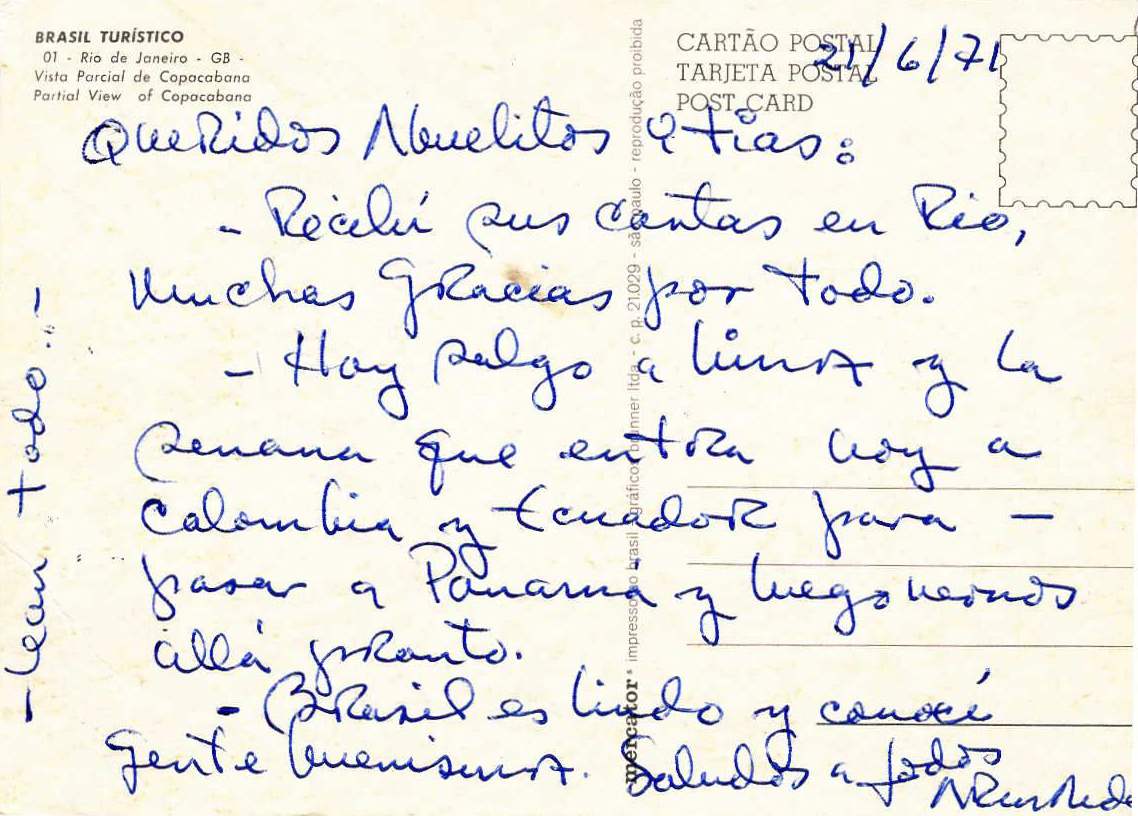 BRASIL TURÍSTICO
01 - Rio de Janeiro - GB -
Vista Parcial de Copacabana
Partial View of Copacabana
CARTÃO POSTAL
TARJETA POSTAL
POST CARD
21/6/71
Queridos Abuelitos e tías:
- Recibí sus cartas en Rio,
Muchas Gracias por todo.
- Hoy salgo a Lima y la
semana que entra voy a
Colombia y Ecuador para -
pasar a Panamá y luego vernos
allá pronto.
- Brasil es lindo y conocí
Gente buenisima. Saludos a todos
- lean todo..!
mercator impresso no brasil - gráficos brunner ltda. - c. p. 21.029 - são paulo - reprodução proibida